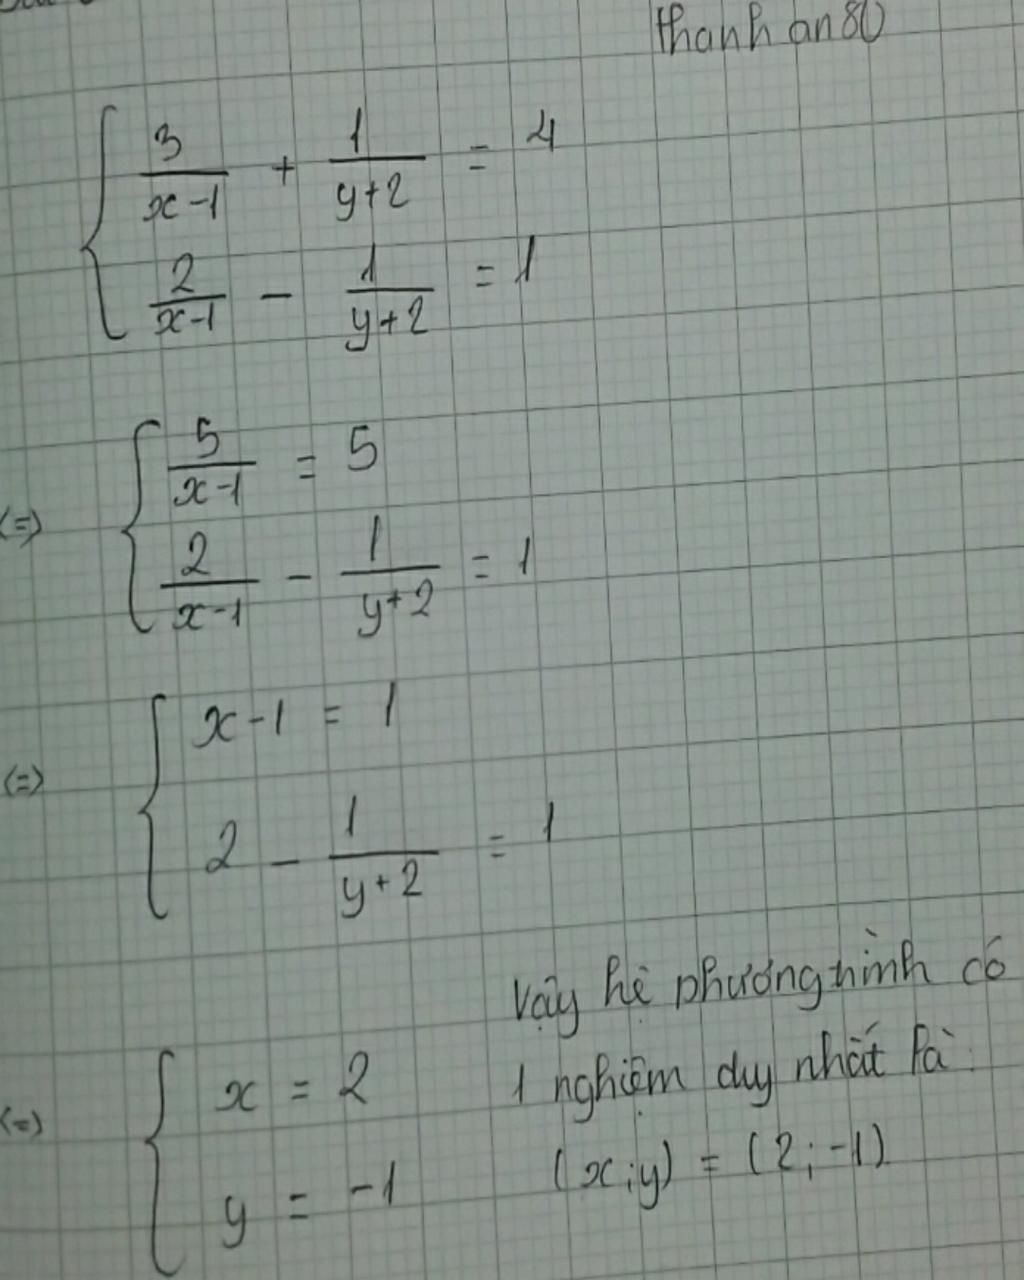 thanh an80
3/(x-1) + 1/(y+2) = 4
2/(x-1) - 1/(y+2) = 1
(=) 5/(x-1) = 5
2/(x-1) - 1/(y+2) = 1
(=) x-1 = 1
2 - 1/(y+2) = 1
Vậy hệ phương trình có
1 nghiệm duy nhất là:
(=) x = 2
y = -1
(x;y) = (2;-1)